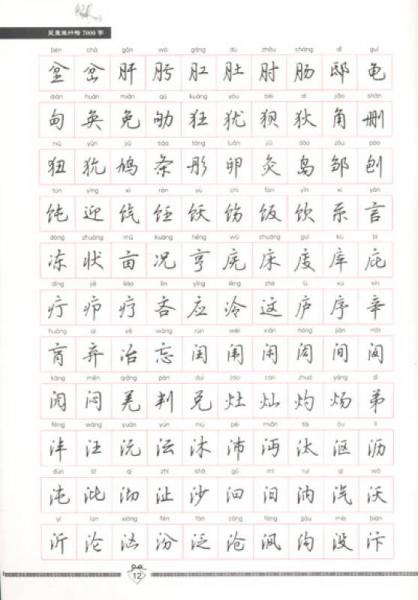 7000 字
bèn chà gān wò gāng dù zhǒu cháng dǐ guī
坌 岔 肝 肟 肛 肚 肘 肠 邸 龟
diàn huàn miǎn qú kuáng yóu bèi dí jiǎo shān
甸 奂 免 劬 狂 犹 狈 狄 角 删
niǔ yǔn jiū tiáo tóng luǎn jiǔ dǎo zōu páo
狃 狁 鸠 条 彤 卵 灸 岛 邹 刨
tún yíng xì rèn yù chì fàn yǐn xì yán
饨 迎 饩 饪 饫 饬 饭 饮 系 言
dòng zhuàng mǔ kuàng hēng wǔ chuáng guǐ kù bì
冻 状 亩 况 亨 庑 床 庋 库 庇
dīng jiē liáo lìn yīng lěng zhè lú xù xīn
疔 疖 疗 吝 应 冷 这 庐 序 辛
huāng qì yě wàng rùn wéi xián hóng jiān mǐn
肓 弃 冶 忘 闰 闱 闲 闳 间 闵
kàng mèn qiāng pàn duì zào càn zhuó yáng dì
闶 闷 羌 判 兑 灶 灿 灼 炀 弟
fēng wāng yuán yún mù pèi miǎn tài ōu lì
沣 汪 沅 沄 沐 沛 沔 汰 沤 沥
dùn cǐ qī zhǐ shā gǔ mì ruì qì wò
沌 沘 沏 沚 沙 汩 汨 汭 汽 沃
yí lún xiōng fén fàn cāng fēng gōu méi biàn
沂 沦 汹 汾 泛 沧 沨 沟 没 汴
12